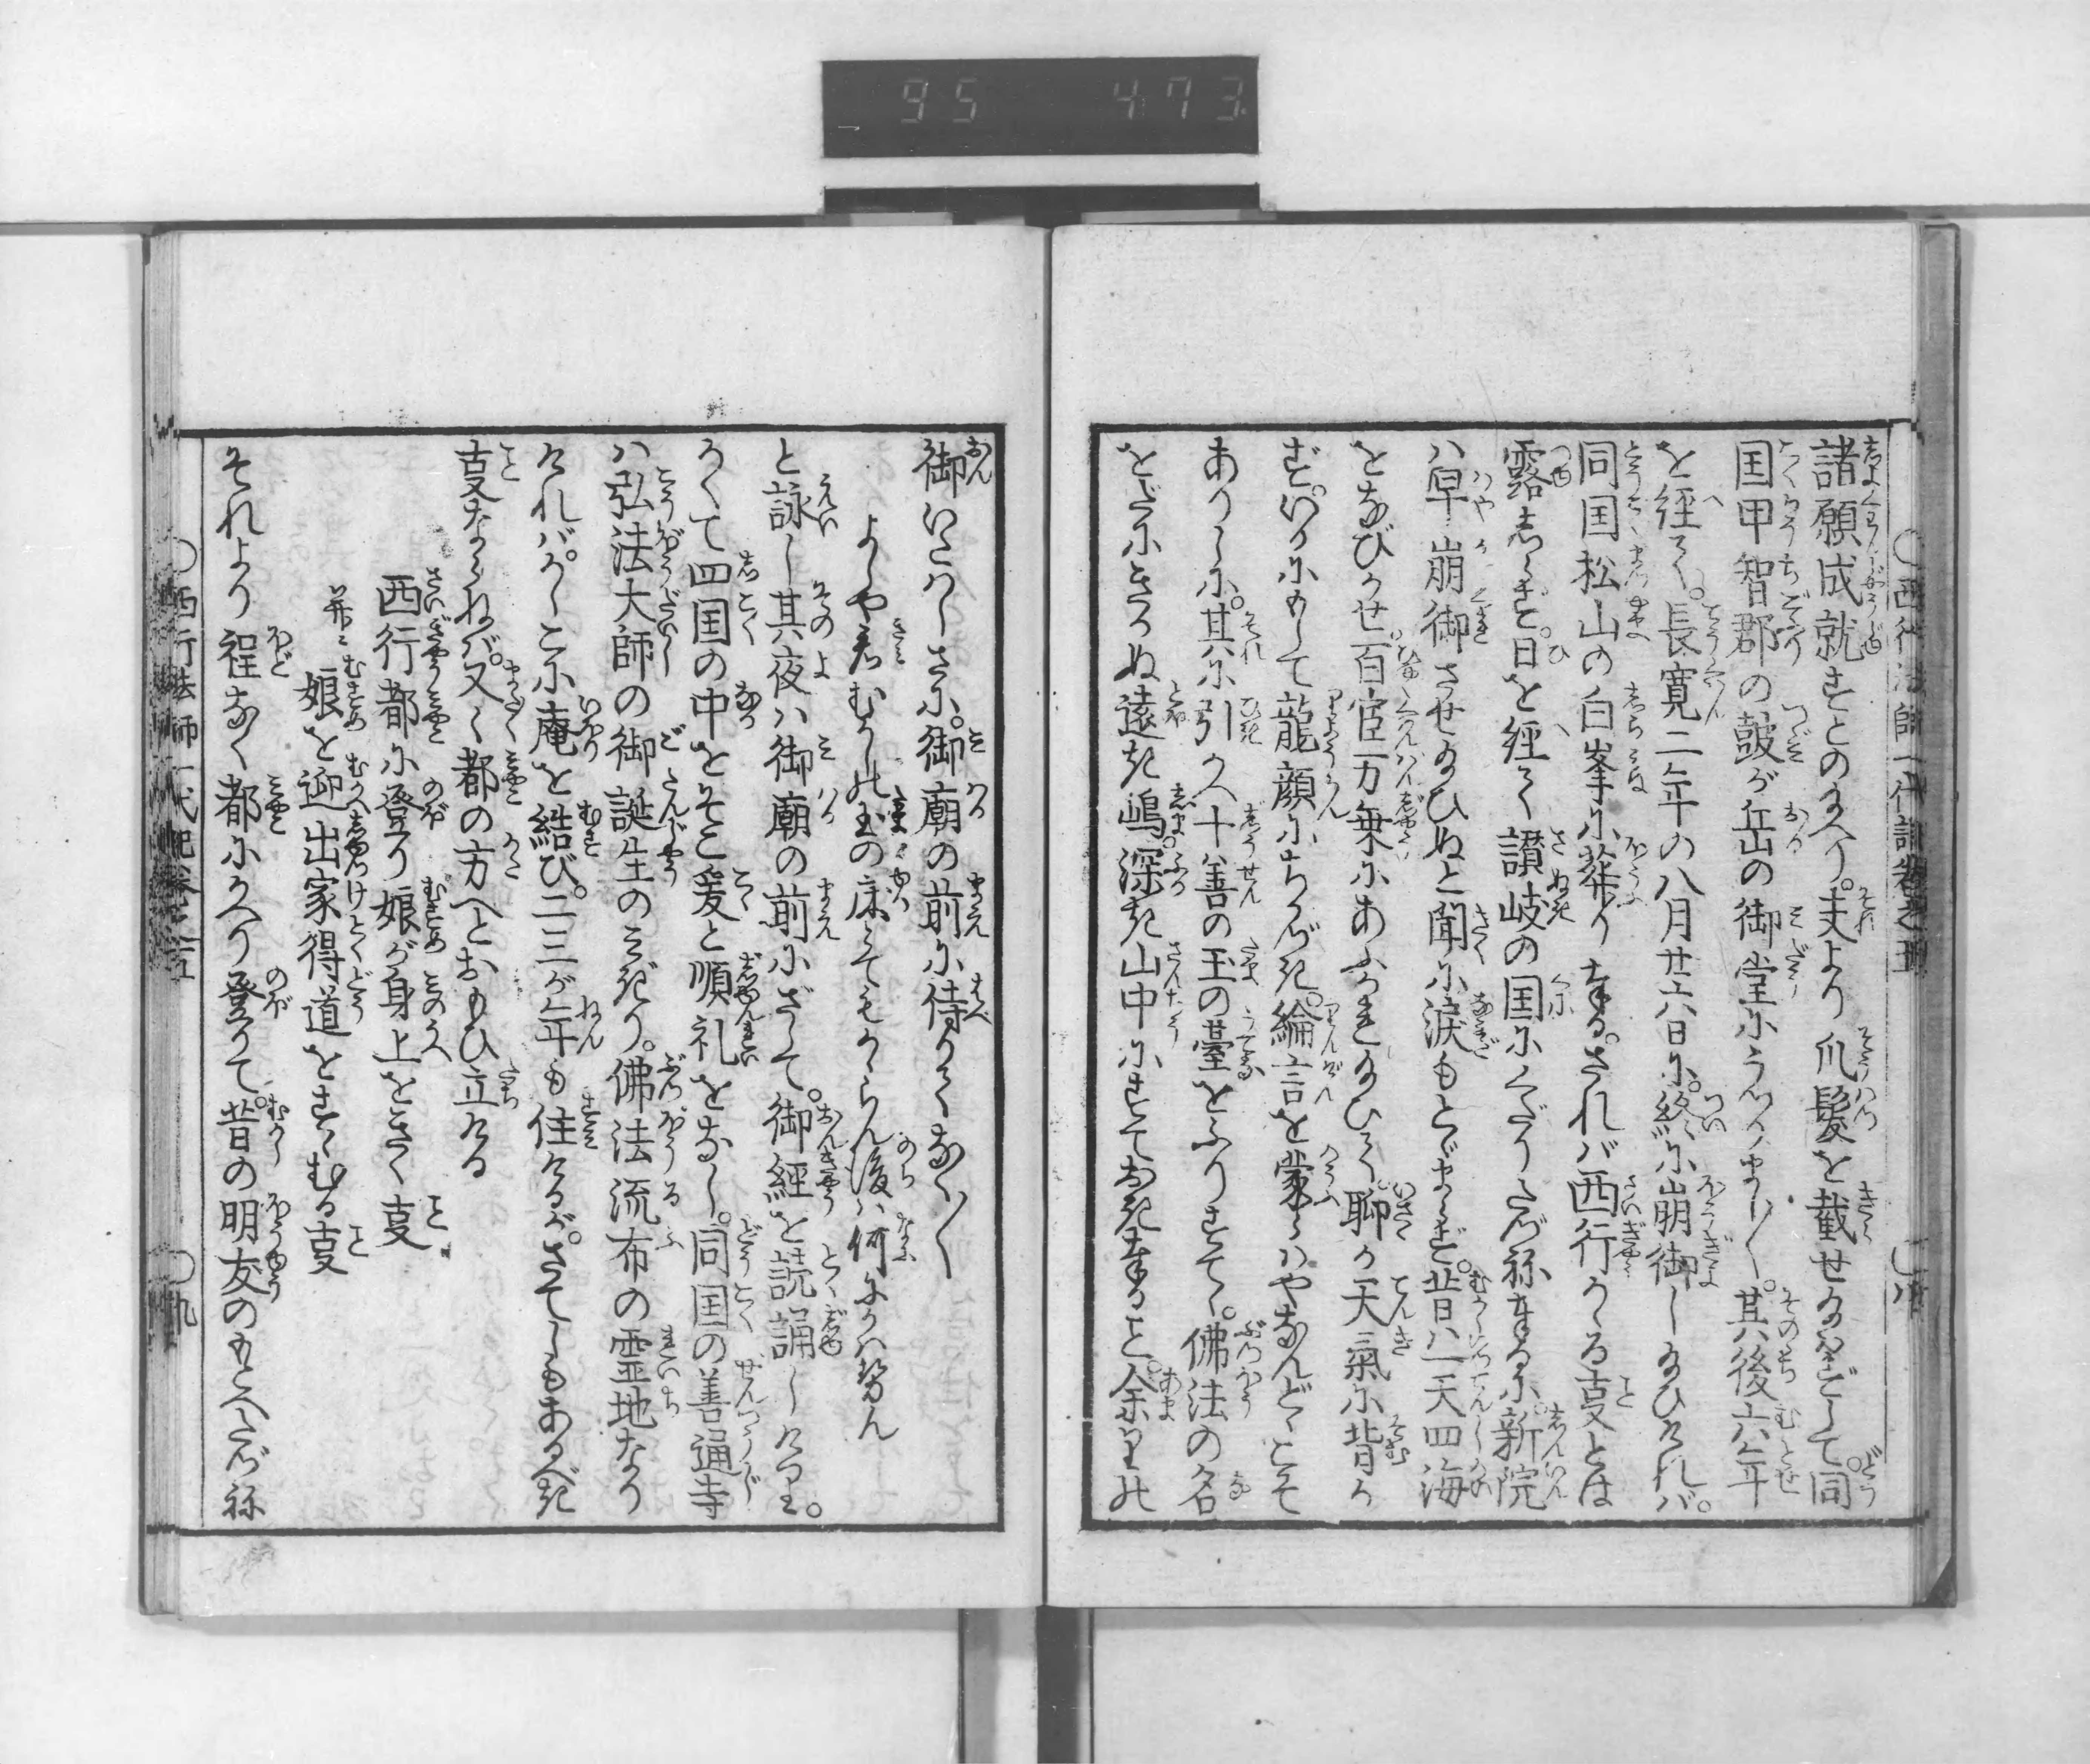 95 473
諸願成就すとのたまへり。夫より爪髪を截せたまはずして。同
国甲智郡の皷が丘の御堂にうつしまし〱。其後六年
を経て。長寛二年の八月廿六日に。終に崩御したまひければ。
同国松山の白峯に葬り奉る。されば西行かゝる事とは
露しらず。日を経て讃岐の国にくだりたづね奉るに。新院
は早崩御させ給ひぬと聞に涙もとゞまらず。昔は一天四海
をなびかせ百官万乗にあふがれ給ひて。聊か天氣に背か
ず。いかにもして龍顔にちかづき。綸言を蒙らはやなんどゝこそ
ありしに。其に引かへ十善の玉の臺をふりすてゝ。佛法の名
をだにきかぬ遠き嶋。深き山中にすておき奉ること。余りの
御いたはしさに。御廟の前に侍りてなく〱
よしや君むかしの玉の床とてもかゝらん後は何にかはせん
と詠し其夜は御廟の前にざして。御経を読誦しけり。
かくて四国の中をそこ爰と順礼をなし。同国の善通寺
は弘法大師の御誕生のみぎり。佛法流布の霊地なり
ければ。かしこに庵を結び。二三が年も住けるが。さてしもあるべき
事ならねば。又〱都の方へとおもひ立ける
西行都に登り娘が身上をきく事
并ニ 娘を迎出家得道をすゝむる事
それより程なく都にかへり登りて。昔の明友のもとへたづね
〇西行法師一代記巻之五
〇九